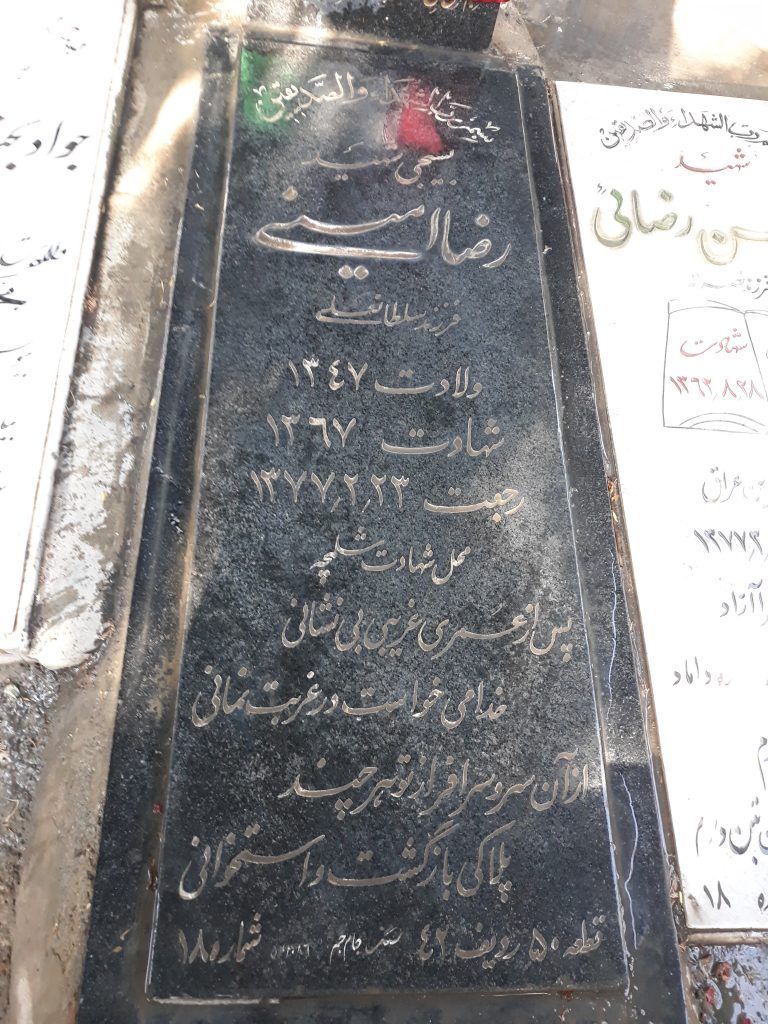 بسم رب الشهداء والصدیقین
بسیجی شهید
رضا امینی
فرزند سلطانعلی
ولادت ۱۳٤۷
شهادت ۱۳٦۷
رجعت ۱۳۷۷٫۲٫۲۳
محل شهادت شلمچه
پس از عمری غریبی بی نشانی
خدا می خواست در غربت نمانی
از آن سرو سرافراز تو هر چند
پلاکی بازگشت و استخوانی
قطعه ۵۰ ردیف ٤۲ شماره ۱۸
سنگ جام جم
رب الشهداء والصدیقین
شهید
رضائی
شهادت
۱۳٦۲٫۸٫۲۸
عراق
آزاد
داماد
۱۸
جواد